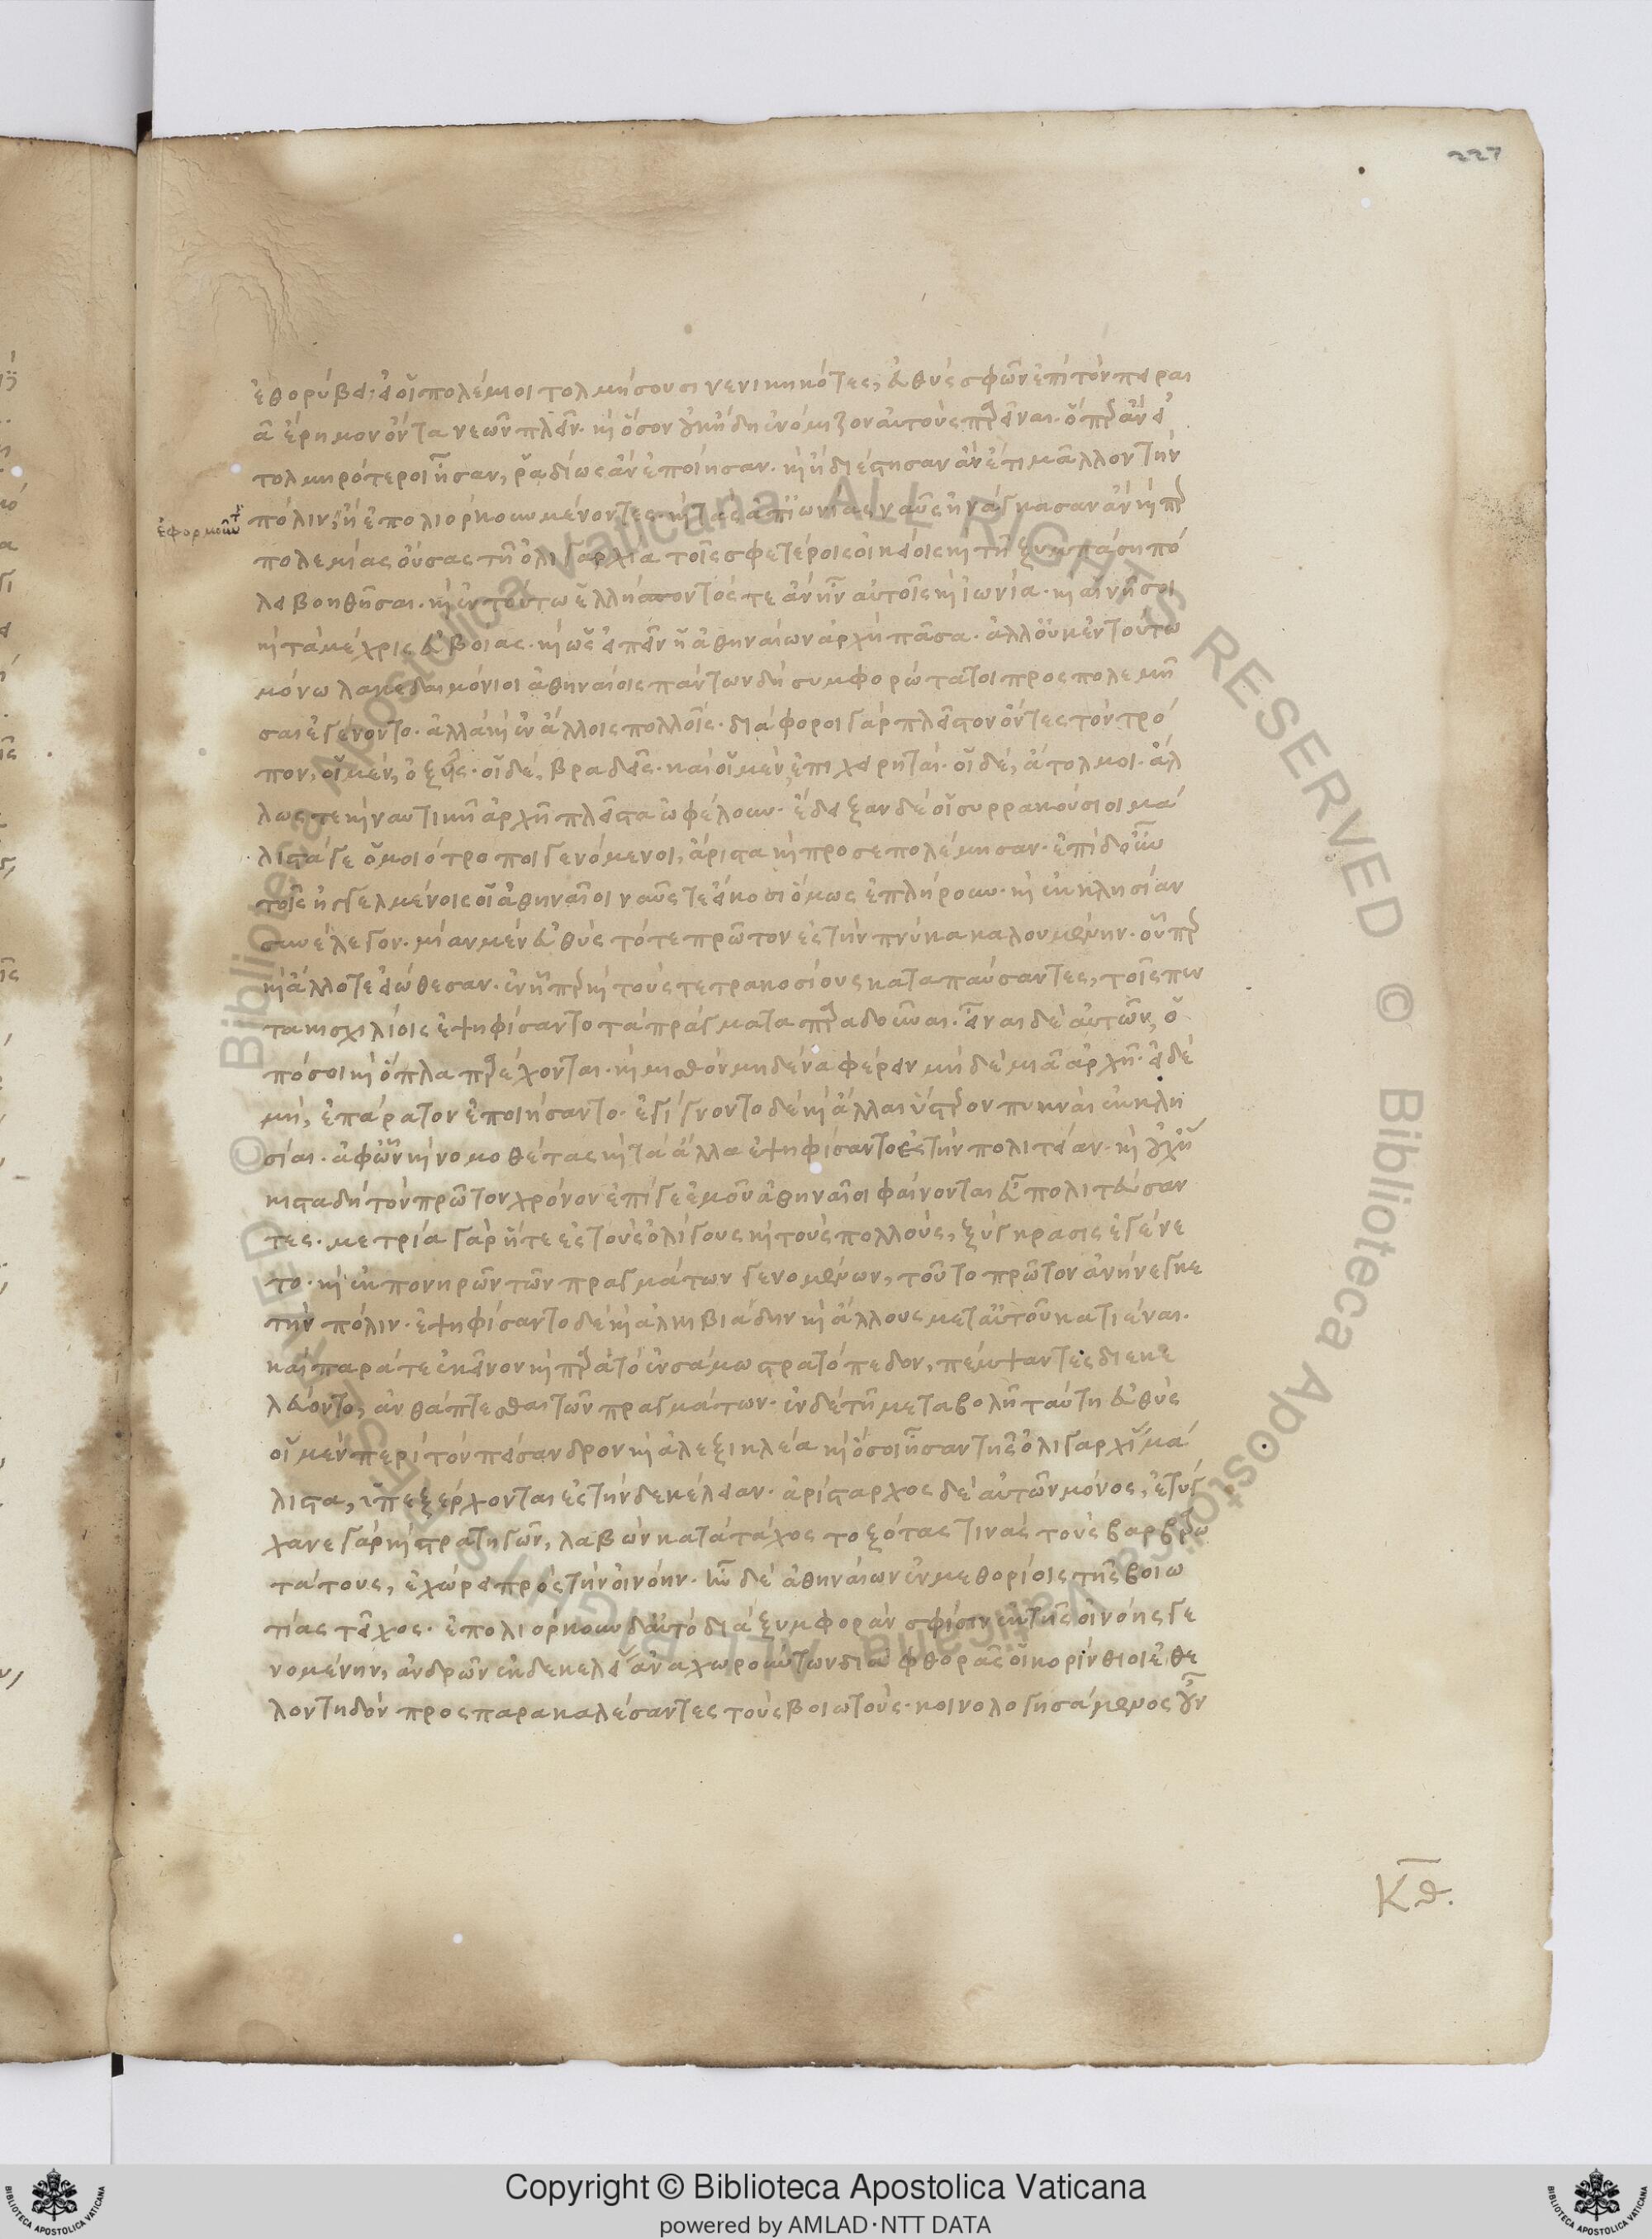 227
ἐθορύβει· εἰ οἱ πολέμιοι τολμήσουσι νενικηκότες, εὐθὺς σφῶν ἐπὶ τὸν πειραι
ᾶ ἐρημον ὄντα νεῶν πλεῖν· κ ὅσον οὐκ ἤδη ἐνόμιζον αὐτοὺς παρεῖναι· ὅπερ ἂν εἰ
τολμηρότεροι ἦσαν, ῥαδίως ἂν ἐποίησαν· κ ἢ διέστησαν ἂν ἔτι μᾶλλον τὴν
πόλιν, ἢ ἐπολιόρκουν μένοντες· κ τὰς ἀπ ϊωνίας ναῦς ἠνάγκασαν ἂν κ περ
ἐφορμοῦντ
πολεμίας οὔσας τῆ ὀλιγαρχία τοῖς σφετέροις οἰκείοις κ τῆ ξυμπάση πό
λει βοηθῆσαι· κ ἐν τούτω ἑλλήσποντός τε ἂν ἦν αὐτοῖς κ ἰωνία· κ αἱ νῆσοι
κ τὰ μέχρις εὐβοίας· κ ὡς εἰπεῖν ἡ ἀθηναίων ἀρχὴ πᾶσα· ἀλλ οὐκ ἐν τούτω
μόνω λακεδαιμόνιοι ἀθηναίοις πάντων δὴ συμφορώτατοι προςπολεμῆ
σαι ἐγένοντο· ἀλλὰ κ ἐν ἄλλοις πολλοῖς· διάφοροι γὰρ πλεῖστον ὄντες τὸν τρό
πον, οἱ μέν, ὀξεῖς· οἱ δέ, βραδεῖς· καὶ οἱ μὲν, ἐπιχειρηταί· οἱ δέ, ἄτολμοι· ἄλ
λως τε κ ναυτικῆ ἀρχῆ πλεῖστα ὠφέλουν· ἔδειξαν δὲ οἱ συρρακούσιοι μά
λιστα γε ὁμοιότροποι γενόμενοι, ἄριστα κ προσεπολέμησαν· ἐπὶ δ οὖν
τοῖς ἠγγελμένοις οἱ ἀθηναῖοι ναῦς τε εἴκοσι ὅμως ἐπλήρουν· κ ἐκκλησίαν
συνέλεγον· μίαν μὲν εὐθὺς τότε πρῶτον ἐς τὴν πνύκα καλουμένην· οὗπερ
κ ἄλλοτε εἰώθεσαν· ἐν ἧπερ κ τοὺς τετρακοσίους καταπαύσαντες, τοῖς πεν
τακισχιλίοις ἐψηφίσαντο τὰ πράγματα παραδοῦναι· εἶναι δὲ αὐτῶν, ὁ
πόσοι κ ὅπλα παρέχονται· κ μισθὸν μηδένα φέρειν μὴ δὲ μιᾶ ἀρχῆ· εἰ δὲ
μὴ, ἐπάρατον ἐποιήσαντο· ἐγίγνοντο δὲ κ ἄλλαι ὕστερον πυκναὶ ἐκκλη
σίαι· ἀφ ὧν κ νομοθέτας κ τἆ ἄλλα ἐψηφίσαντο ἐς τὴν πολιτείαν· κ οὐχ ἥ
κιστα δὴ τὸν πρῶτον χρόνον ἐπί γε ἐμοῦ ἀθηναῖοι φαίνονται εὖ πολιτεύσαν
τες· μετρία γὰρ ἥτε ἐς τοὺς ὀλίγους κ τοὺς πολλοὺς, ξύγκρασις ἐγένε
το· κ ἐκ πονηρῶν τῶν πραγμάτων γενομένων, τοῦτο πρῶτον ἀνήνεγκε
τὴν πόλιν· ἐψηφίσαντο δὲ κ ἀλκιβιάδην κ ἄλλους μετ αὐτοῦ κατιέναι·
καὶ παρά τε ἐκεῖνον κ παρὰ τὸ ἐν σάμω στρατόπεδον, πέμψαντες διεκε
λεύοντο, ἀνθάπτεσθαι τῶν πραγμάτων· ἐν δὲ τῆ μεταβολῆ ταύτη εὐθὺς
οἱ μὲν περὶ τὸν πείσανδρον κ ἀλεξικλέα κ ὅσοι ἦσαν τῆς ὀλιγαρχίας μά
λιστα, ὑπεξέρχονται ἐς τὴν δεκέλειαν· ἀρίσταρχος δὲ αὐτῶν μόνος, ἔτυγ
χανε γὰρ κ στρατηγῶν, λαβὼν κατὰ τάχος τοξότας τινὰς τοὺς βαρβαρω
τάτους, ἐχώρει πρὸς τὴν οἰνόην· ἦν δὲ ἀθηναίων ἐν μεθορίοις τῆς βοιω
τίας τεῖχος· ἐπολιόρκουν δ αὐτὸ διὰ ξυμφορὰν σφίσιν ἐκ τῆς οἰνόης γε
νομένην, ἀνδρῶν ἐκ δεκελείας ἀναχωρούντων διαφθορᾶς οἱ κορίνθιοι ἐθε
λοντηδὸν προςπαρακαλέσαντες τοὺς βοιωτούς· κοινολογησάμενος οὖν
κθ.
Copyright © Biblioteca Apostolica Vaticana
powered by AMLAD·NTT DATA
© Biblioteca Apostolica Vaticana ALL RIGHTS RESERVED © Biblioteca Apostolica Vaticana ALL RIGHTS RESERVED
BIBLIOTECA APOSTOLICA VATICANA
BIBLIOTECA APOSTOLICA VATICANA